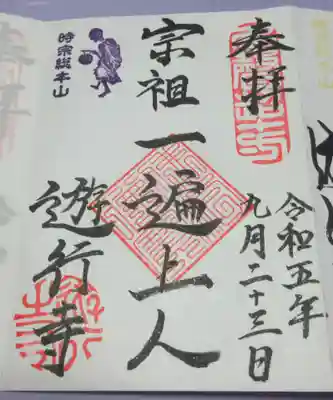 奉拝
令和五年
九月二十三日
宗祖一遍上人
時宗総本山
遊行寺